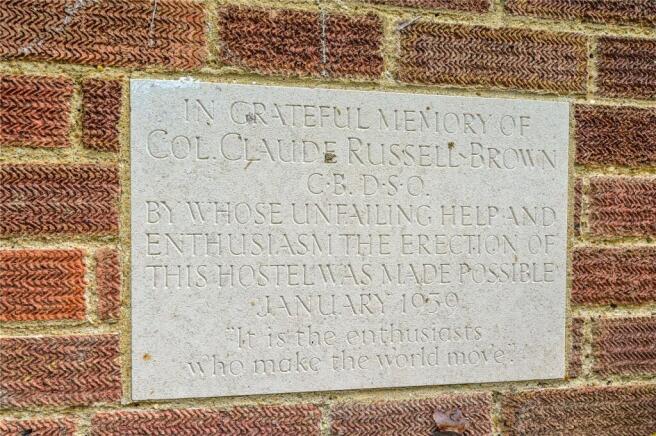 IN GRATEFUL MEMORY OF
COL. CLAUDE RUSSELL-BROWN
C·B. D·S·O.
BY WHOSE UNFAILING HELP AND
ENTHUSIASM THE ERECTION OF
THIS HOSTEL WAS MADE POSSIBLE
JANUARY 1939
"It is the enthusiasts
who make the world move".